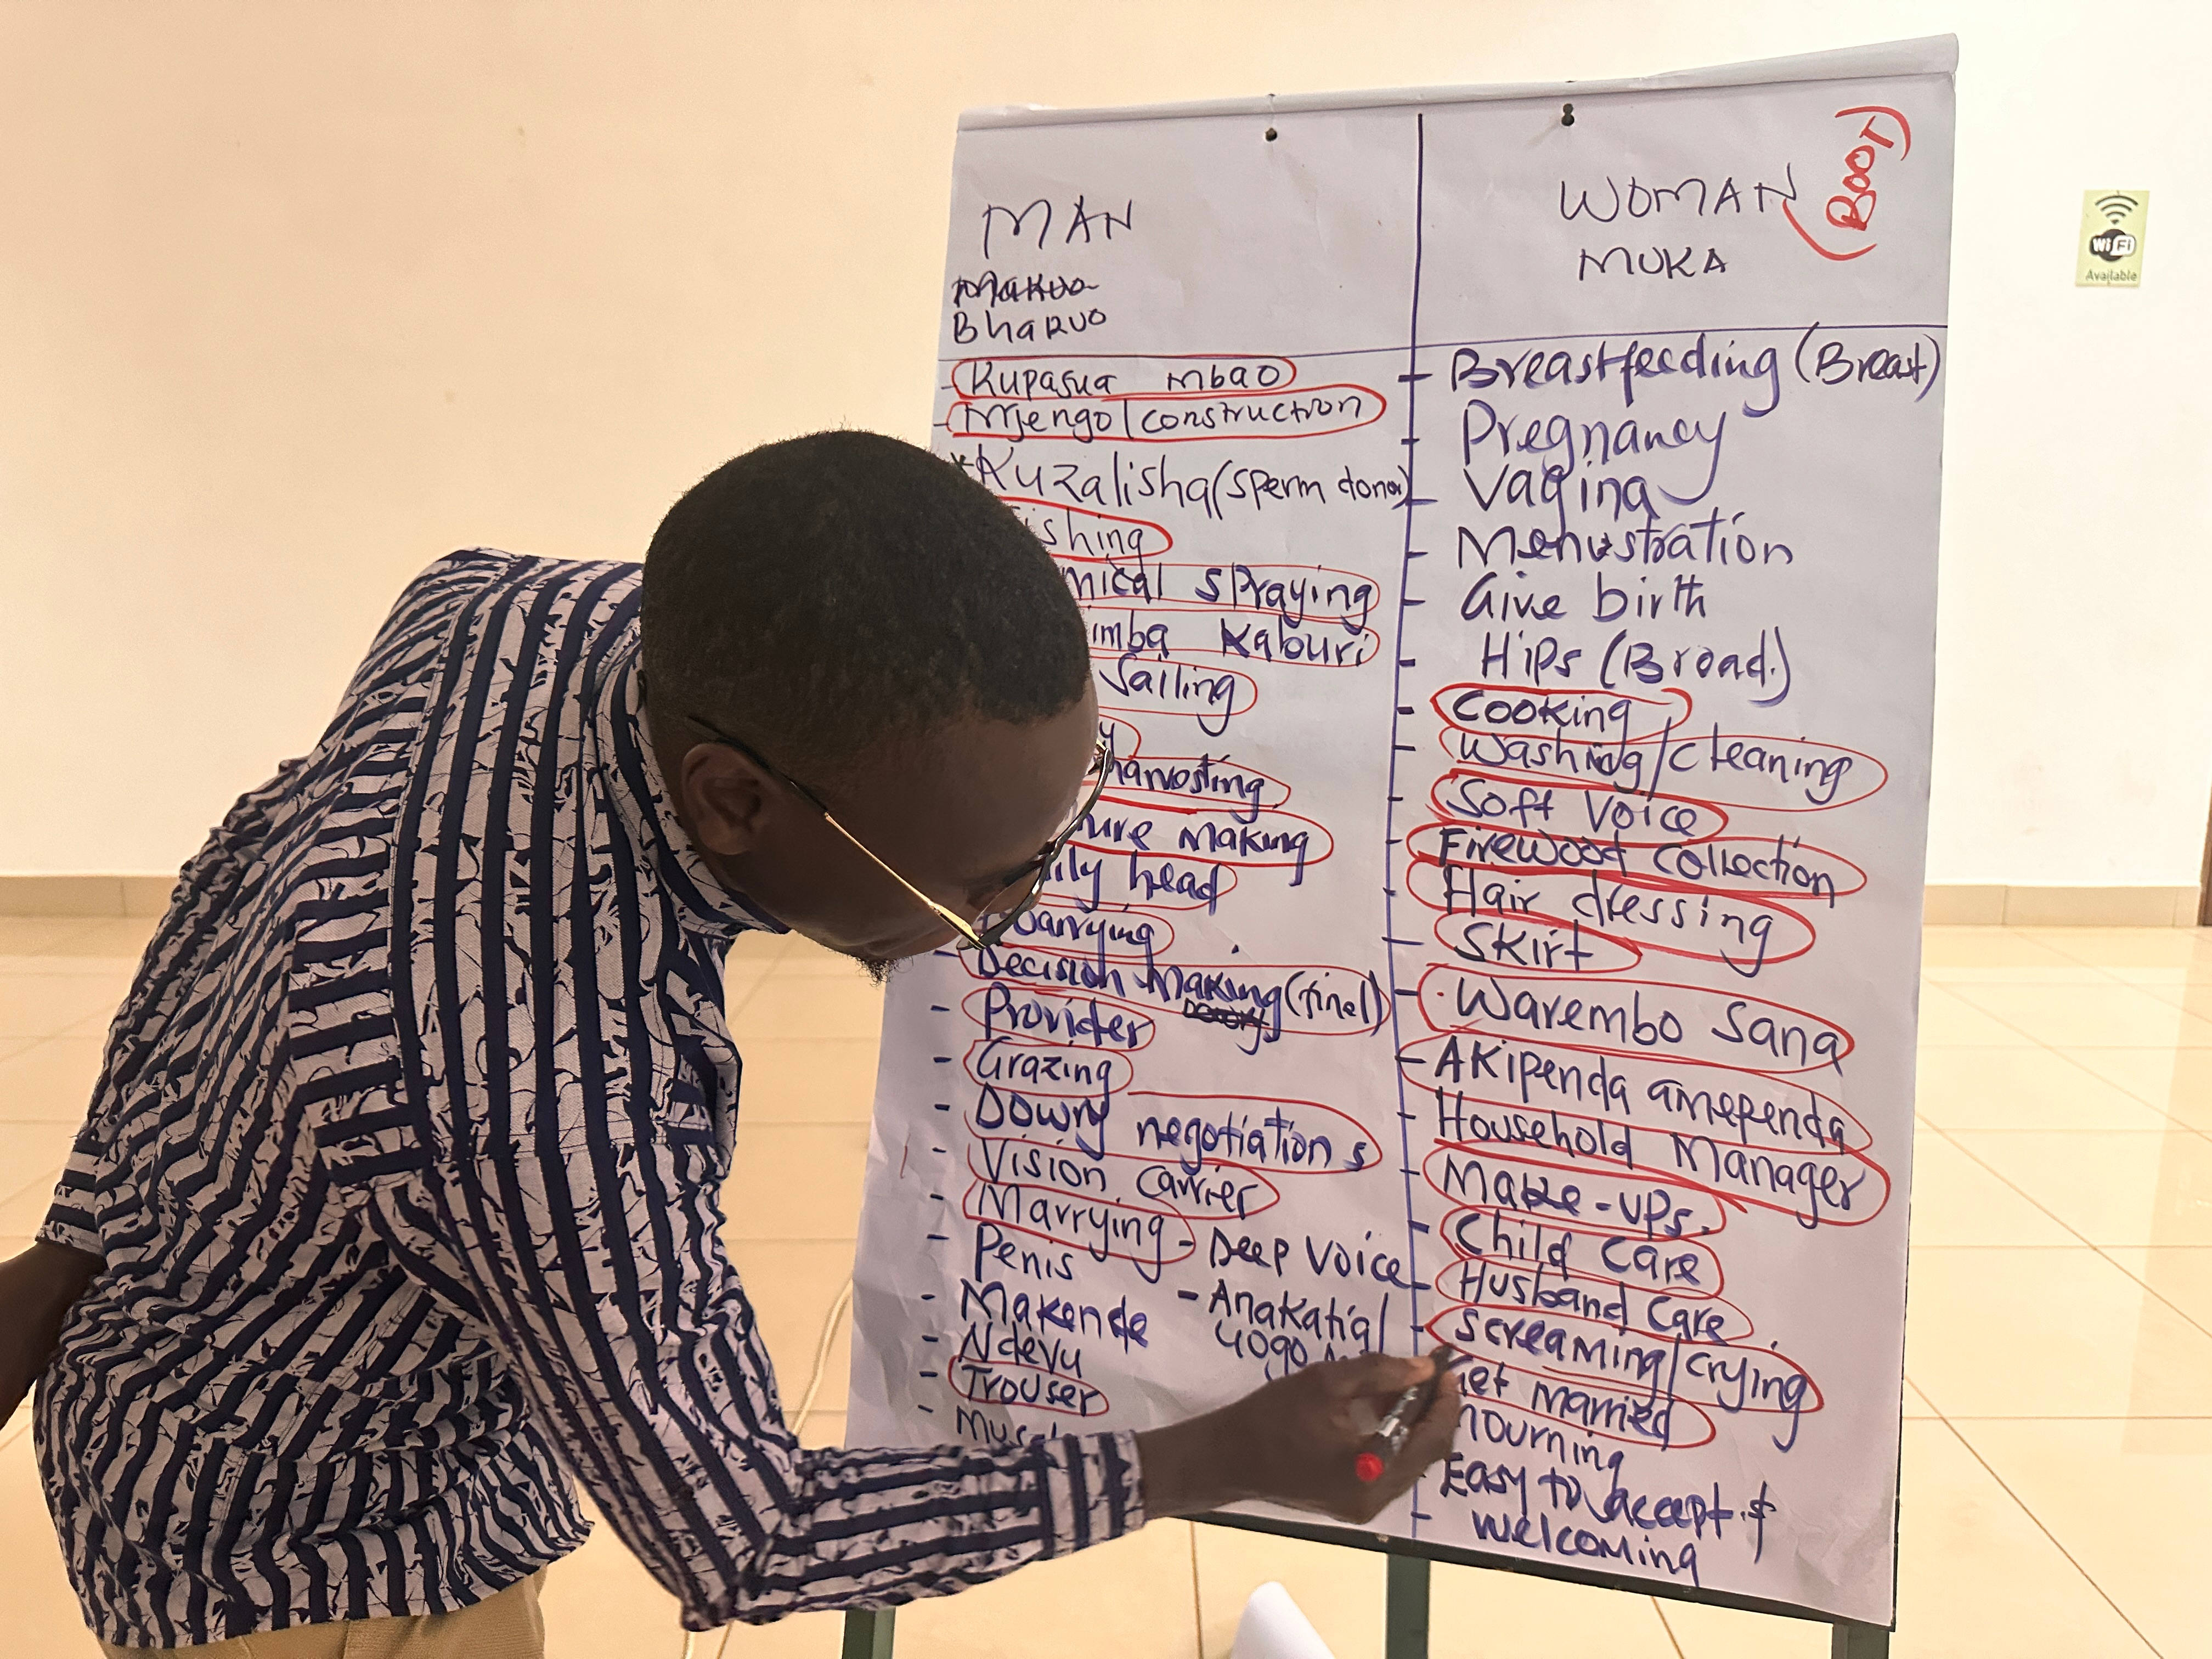 MAN
Makuo
Bharuo
- Kupasua mbao
- Mjengo/construction
Kuzalisha (sperm donor)
shing
mical spraying
imba kaburi
Sailing
y
harvosting
ure making
ily head
Quarrying
- Decision making (final)
- Provider
- Grazing
- Dowry negotiations
- Vision carrier
- Marrying
- Penis
- Makende
- Ndevu
- Trouser
- Muscl
- Deep voice
- Anakatia/
WOMAN
(BOOT)
MUKA
- Breastfeeding (Breast)
- Pregnancy
- Vagina
- Menustration
- Give birth
- Hips (Broad.)
- Cooking
- Washing/cleaning
- Soft voice
- Firewood collection
- Hair dressing
- Skirt
- Warembo sana
- Akipenda amependa
- Household Manager
- Make-ups.
- Child care
- Husband care
- Screaming/crying
Get married
Mourning
- Easy to accept &
welcoming
WiFi
Available